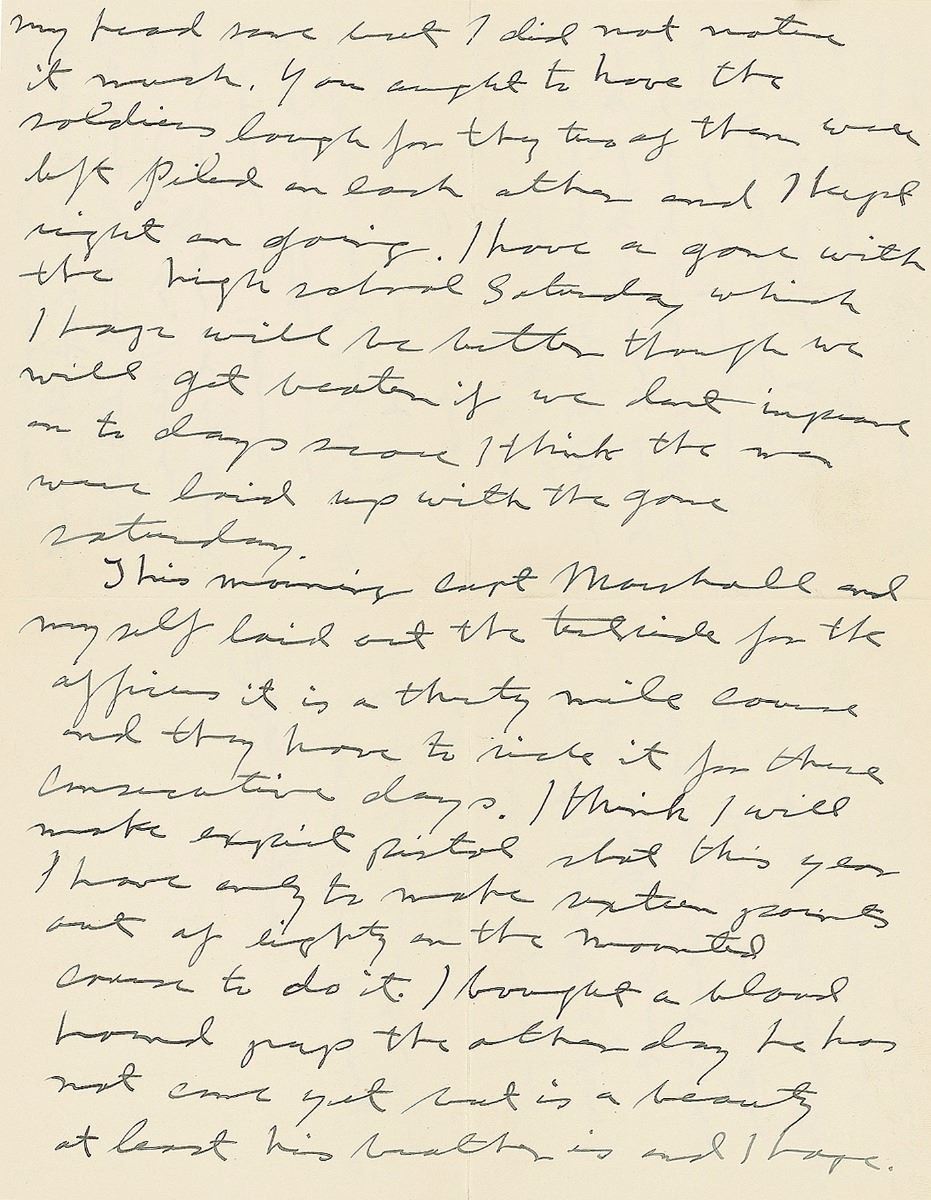 my head some but I did not notice
it much. You aught to have the
soldiers laugh for they two of them were
left piled on each other and I kept
right on going. I have a game with
the high school Saturday which
I hope will be better though we
will get beaten if we dont improve
on to days score I think the men
were laid up with the game
saturday.
This morning capt Marshall and
my self laid out the testride for the
officers it is a thirty mile course
and they have to ride it for three
consecutive days. I think I will
make expert pistol shot this year
I have only to make sixteen points
out of eighty on the mounted
course to do it. I bought a blood
hound pup the other day he has
not come yet but is a beauty
at least his brother is and I hope.